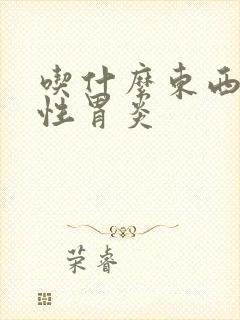 喫什麼東西
性胃炎
荣睿